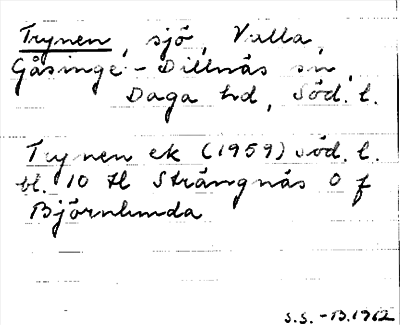 Trynen, sjö, Valla,
Gåsinge-Dillnäs sn,
Daga hd, Söd. l.
Trynen ek (1959) Söd. l.
bl. 10 H Strängnäs O f
Björnlunda
S.S. -B.1962